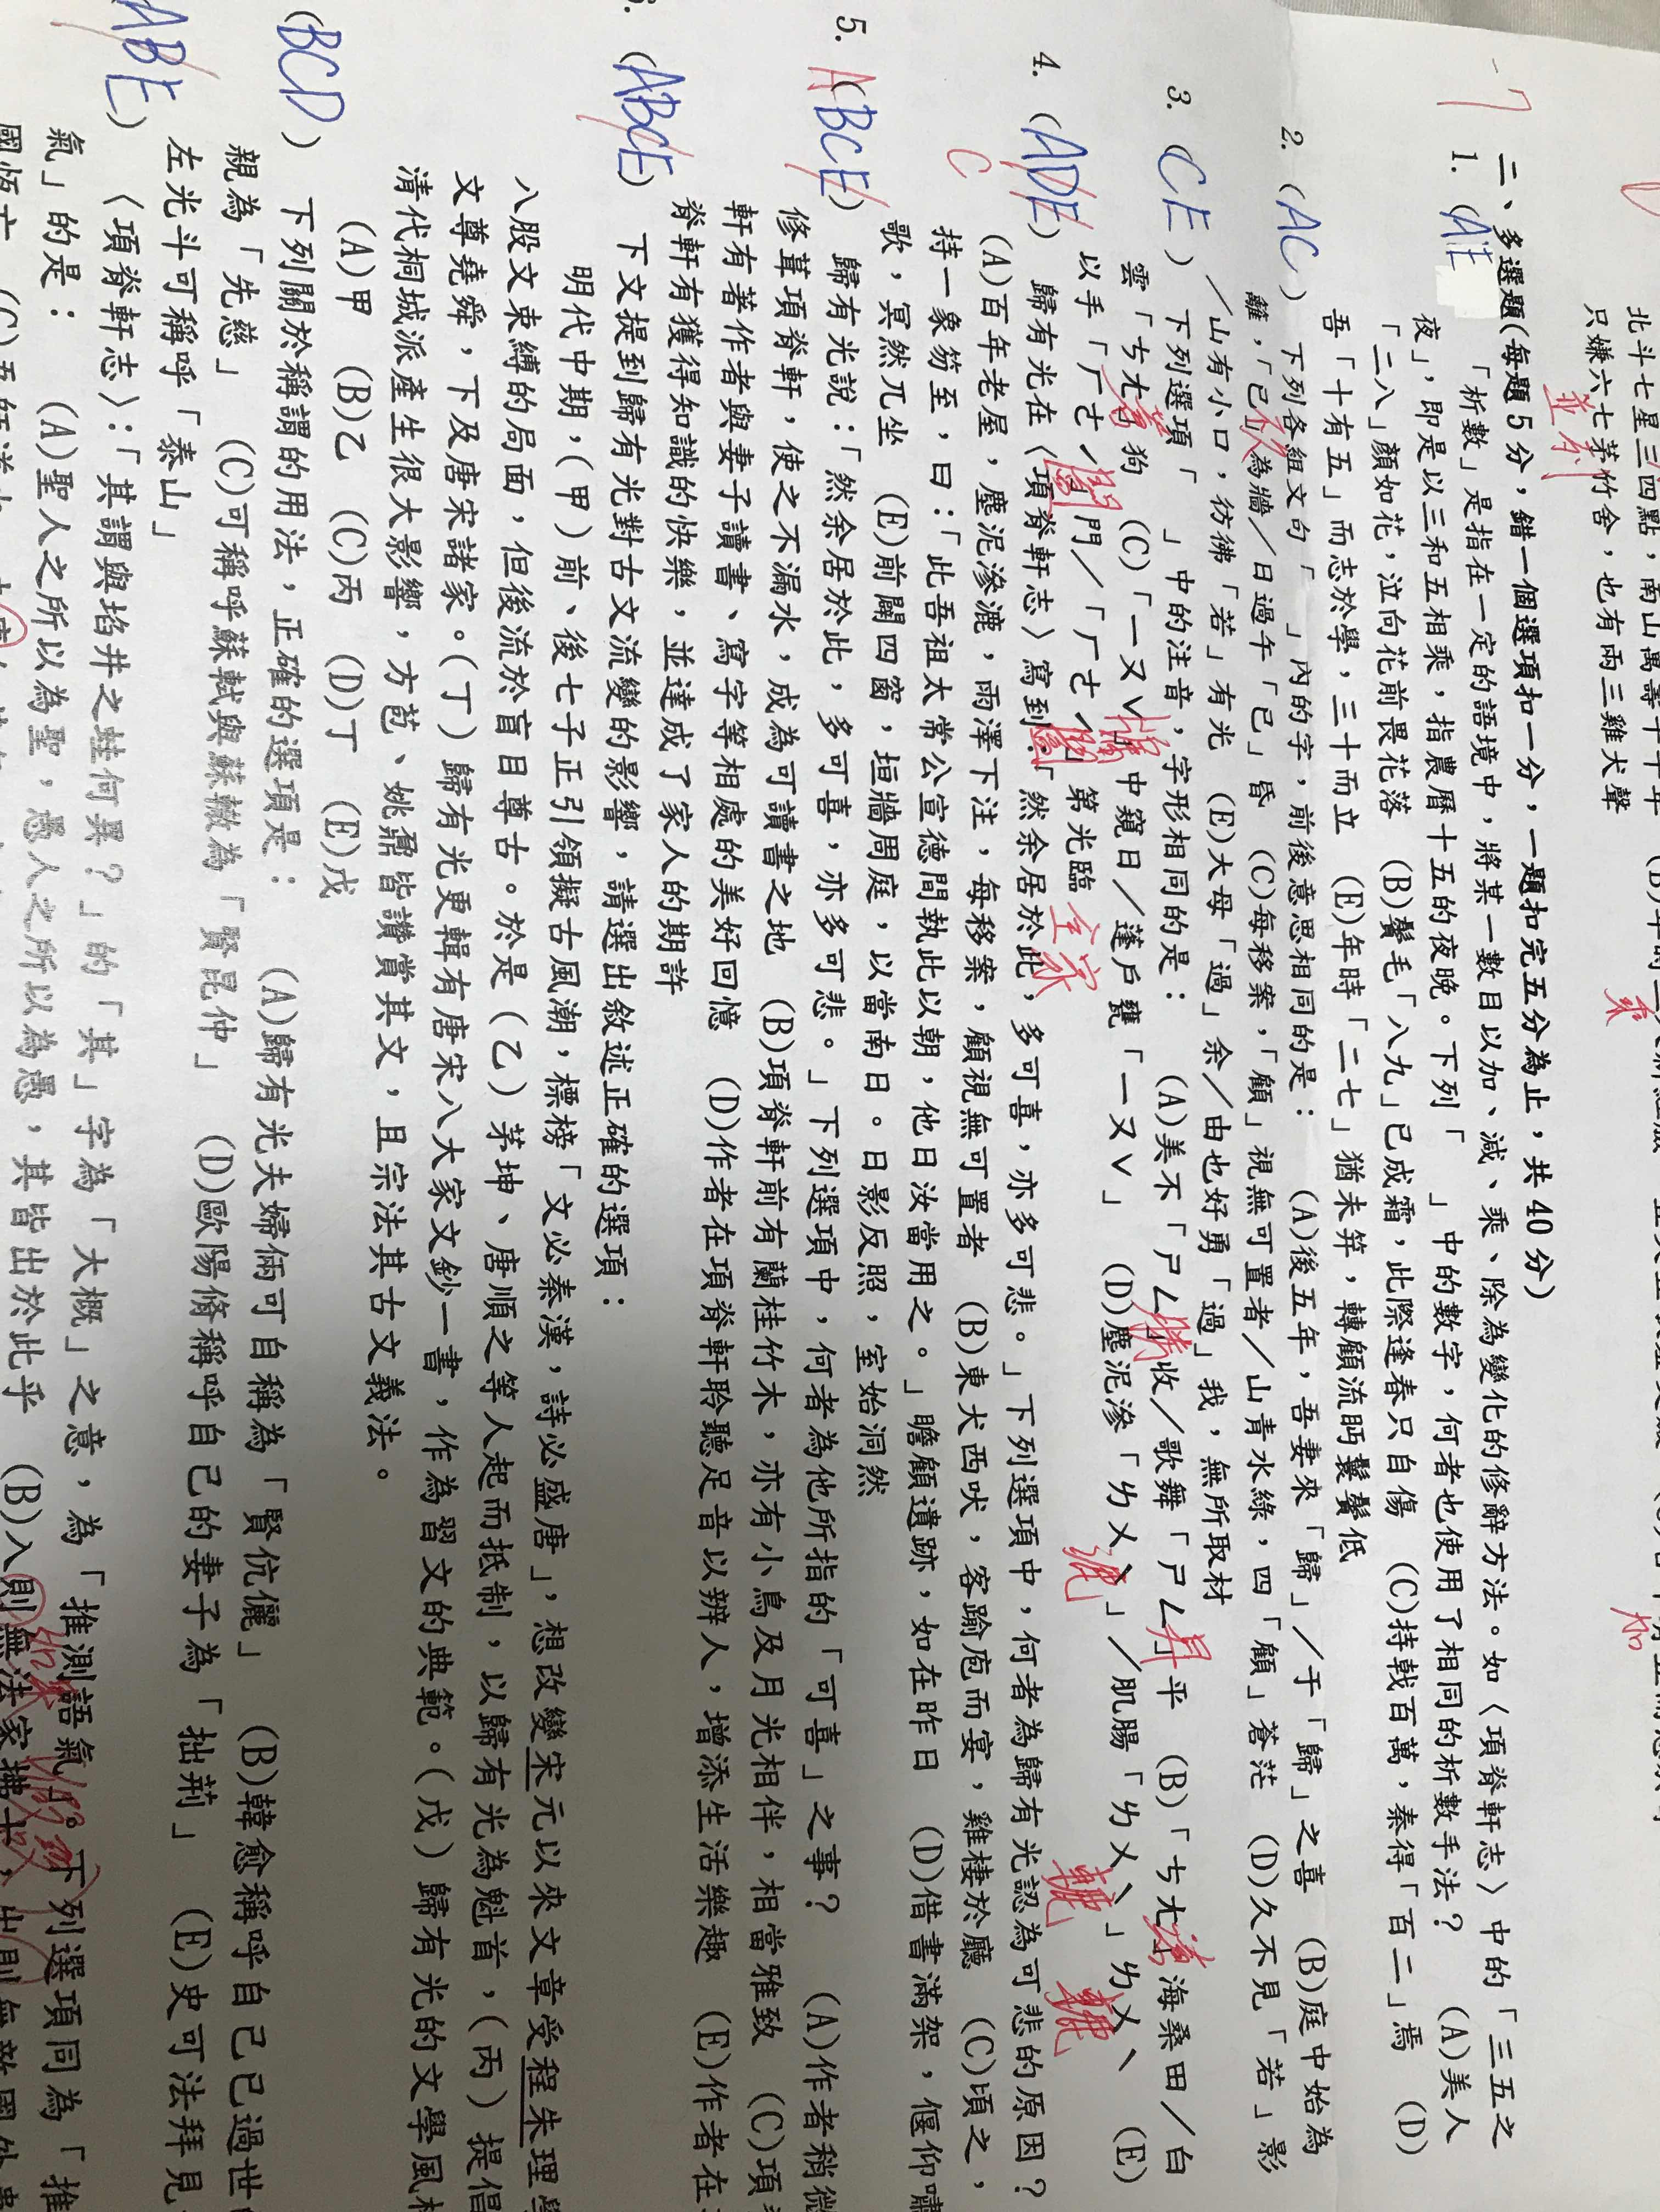 北斗七星三四點，南山萬壽十千年
只嫌六七茅竹舍，也有兩三雞犬聲
並列
乘
加
-7
二、多選題(每題5分，錯一個選項扣一分，一題扣完五分為止，共40分)
1. (AE
「析數」是指在一定的語境中，將某一數目以加、減、乘、除為變化的修辭方法。如〈項脊軒志〉中的「三五之
夜」，即是以三和五相乘，指農曆十五的夜晚。下列「 」中的數字，何者也使用了相同的析數手法？ (A)美人
「二八」顏如花，泣向花前畏花落 (B)鬢毛「八九」已成霜，此際逢春只自傷 (C)持戟百萬，秦得「百二」焉 (D)
吾「十有五」而志於學，三十而立 (E)年時「二七」猶未笄，轉顧流眄鬟鬢低
2. (AC) 下列各組文句「 」內的字，前後意思相同的是： (A)後五年，吾妻來「歸」／于「歸」之喜 (B)庭中始為
籬，「已」為牆／日過午「已」昏 (C)每移案，「顧」視無可置者／山青水綠，四「顧」蒼茫 (D)久不見「若」影
／山有小口，彷彿「若」有光 (E)大母「過」余／由也好勇「過」我，無所取材
3. (CE) 下列選項「 」中的注音，字形相同的是： (A)美不「ㄕㄥ」收／歌舞「ㄕㄥ」平 (B)「ㄘㄤ」海桑田／白
勝 昇 滄
雲「ㄘㄤ」狗 (C)「ㄧㄡˇ」中窺日／蓬戶甕「ㄧㄡˇ」 (D)塵泥滲「ㄌㄨˋ」／肌腸「ㄌㄨˋ」ㄌㄨˋ (E)
蒼 牖 漉 轆 轆
以手「ㄏㄜˊ」門／「ㄏㄜˊ」第光臨
闔 闔 全家
4. (ADE) 歸有光在〈項脊軒志〉寫到：「然余居於此，多可喜，亦多可悲。」下列選項中，何者為歸有光認為可悲的原因？
C
(A)百年老屋，塵泥滲漉，雨澤下注，每移案，顧視無可置者 (B)東犬西吠，客踰庖而宴，雞棲於廳 (C)頃之，
持一象笏至，曰：「此吾祖太常公宣德間執此以朝，他日汝當用之。」瞻顧遺跡，如在昨日 (D)借書滿架，偃仰嘯
歌，冥然兀坐 (E)前闢四窗，垣牆周庭，以當南日。日影反照，室始洞然
5. A (BCE) 歸有光說：「然余居於此，多可喜，亦多可悲。」下列選項中，何者為他所指的「可喜」之事？ (A)作者稍微
修葺項脊軒，使之不漏水，成為可讀書之地 (B)項脊軒前有蘭桂竹木，亦有小鳥及月光相伴，相當雅致 (C)項
軒有著作者與妻子讀書、寫字等相處的美好回憶 (D)作者在項脊軒聆聽足音以辨人，增添生活樂趣 (E)作者在
脊軒有獲得知識的快樂，並達成了家人的期許
(ABCE) 下文提到歸有光對古文流變的影響，請選出敘述正確的選項：
明代中期，（甲）前、後七子正引領擬古風潮，標榜「文必秦漢，詩必盛唐」，想改變宋元以來文章受程朱理
八股文束縛的局面，但後流於盲目尊古。於是（乙）茅坤、唐順之等人起而抵制，以歸有光為魁首，（丙）提倡
文尊堯舜，下及唐宋諸家。（丁）歸有光更輯有唐宋八大家文鈔一書，作為習文的典範。（戊）歸有光的文學風
清代桐城派產生很大影響，方苞、姚鼐皆讚賞其文，且宗法其古文義法。
(A)甲 (B)乙 (C)丙 (D)丁 (E)戊
(BCD) 下列關於稱謂的用法，正確的選項是： (A)歸有光夫婦倆可自稱為「賢伉儷」 (B)韓愈稱呼自己已過世
親為「先慈」 (C)可稱呼蘇軾與蘇轍為「賢昆仲」 (D)歐陽脩稱呼自己的妻子為「拙荊」 (E)史可法拜見
左光斗可稱呼「泰山」
(ABE) 〈項脊軒志〉：「其謂與埳井之蛙何異？」的「其」字為「大概」之意，為「推測語氣」。下列選項同為「推
氣」的是： (A)聖人之所以為聖，愚人之所以為愚，其皆出於此乎 (B)入則無法家拂士，出則無敵國外
國恆亡